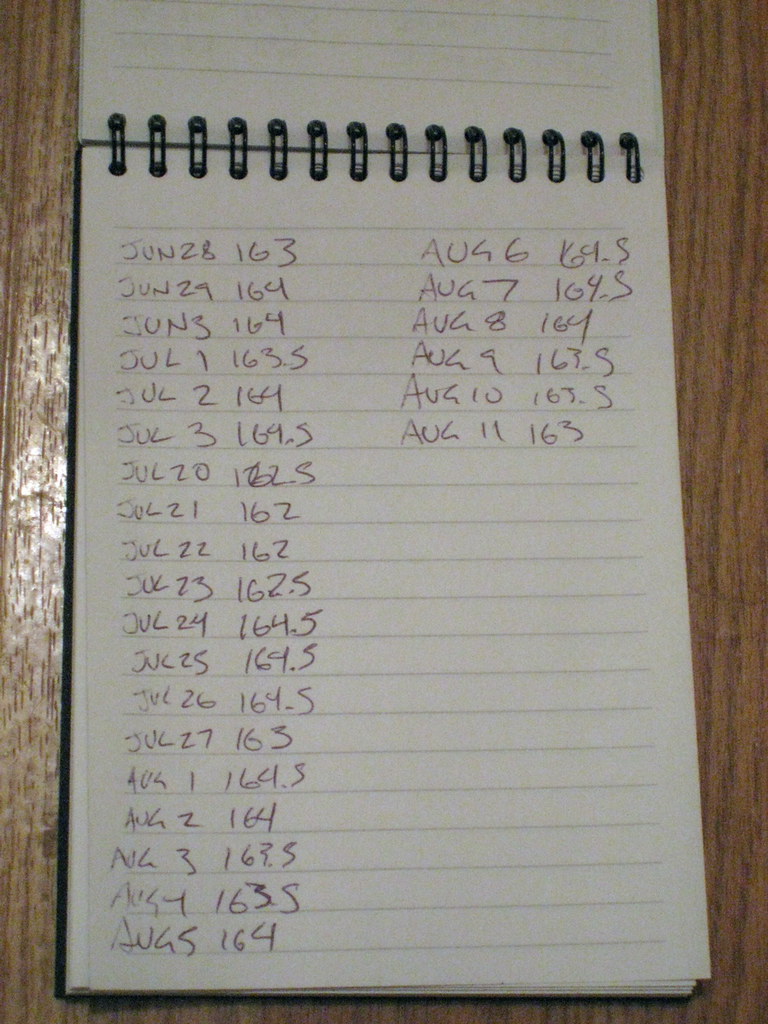 JUN28 163
JUN29 164
JUN3 164
JUL 1 163.5
JUL 2 164
JUL 3 164.5
JUL20 162.5
JUL21 162
JUL 22 162
JUL23 162.5
JUL24 164.5
JUL25 164.5
JUL26 164.5
JUL27 163
AUG 1 164.5
AUG 2 164
AUG 3 163.5
AUG4 163.5
AUG5 164
AUG 6 164.5
AUG 7 164.5
AUG 8 164
AUG 9 163.5
AUG 10 163.5
AUG 11 163